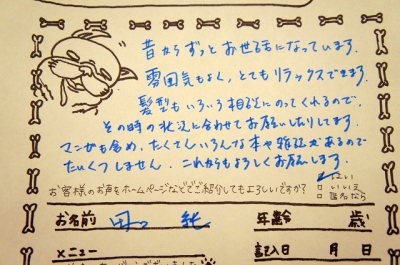 昔からずっとお世話になっています。
雰囲気もよく、とてもリラックスできます。
髪型もいろいろ相談にのってくれるので、
その時の状況に合わせてお願いしたりしてます。
マンガも含め、たくさんいろんな本や雑誌があるので
たいくつしません。これからもよろしくお願いします。
お客様のお声をホームページなどでご紹介してもよろしいですか？
□はい
□いいえ
□匿名なら
お名前 年齢 歳
メニュー 記入日 月 日